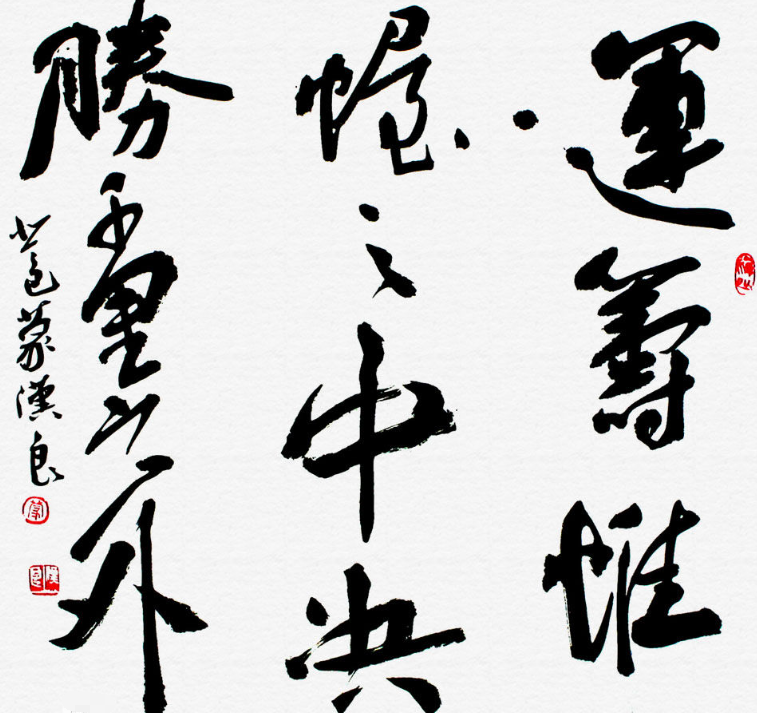 運籌帷
幄之中决
勝千里之外
邑蒙漢良